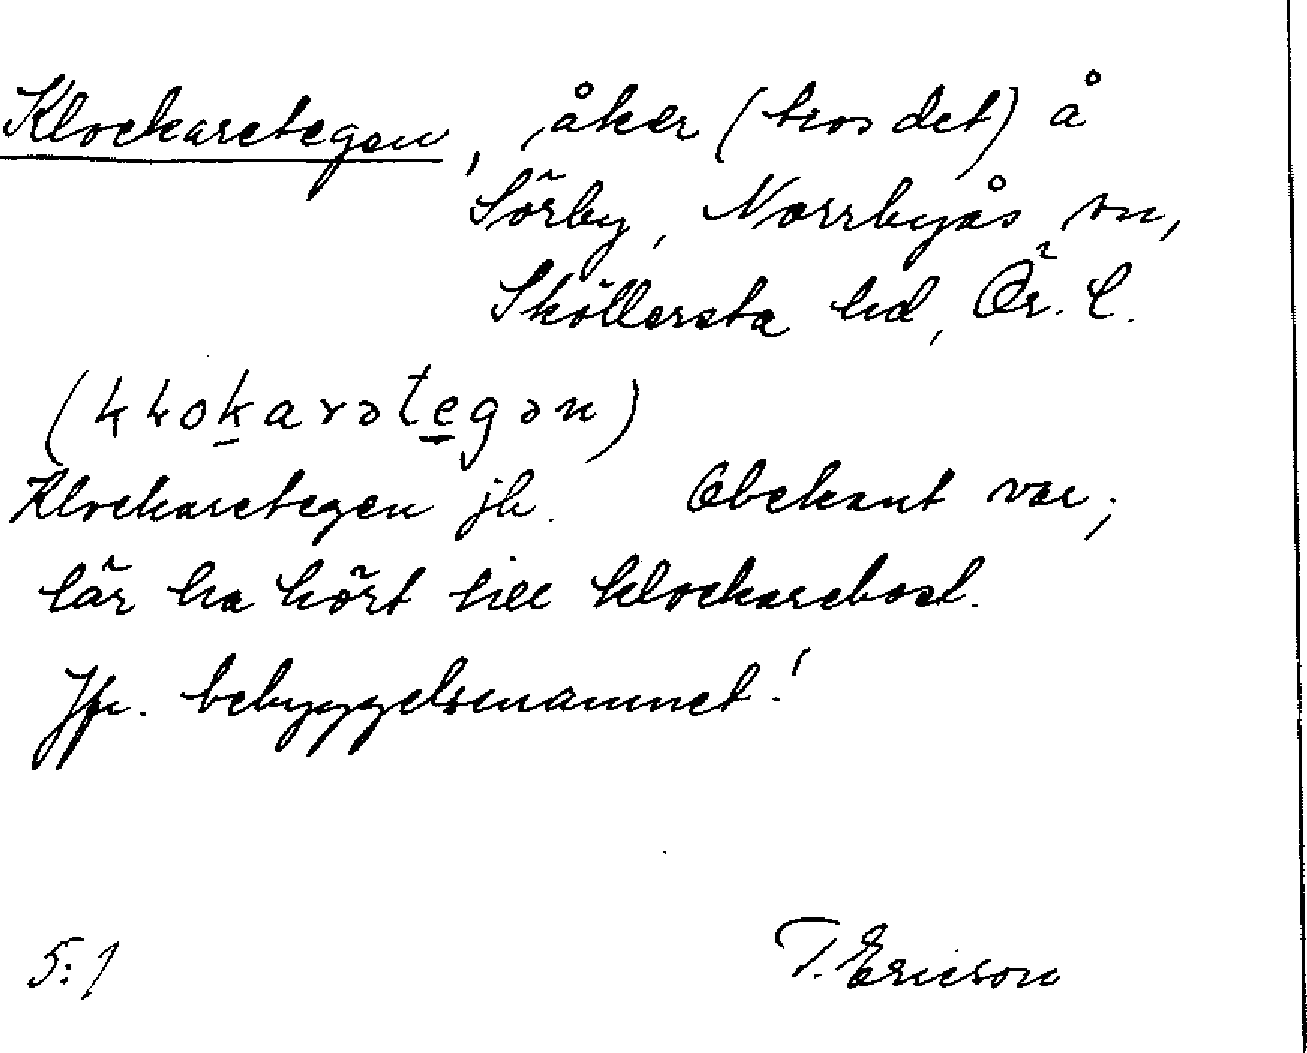 Klockaretegen, åker (tros det) å
Sörby, Norrbyås sn,
Sköllersta hd, Ör. l.
(kLokarətegən)
Klockaretegen jb. Obekant var;
lär ha hört till klockarebost.
Jfr. bebyggelsenamnet!
5:1 T. Ericson